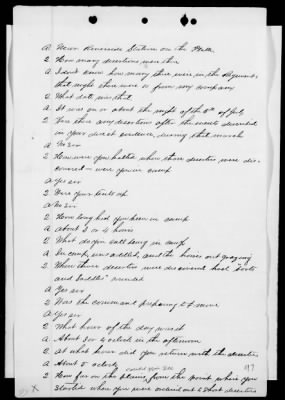 A Near Riverside Station on the Platte
Q How many desertions were there
A I dont know how many there were in the Regiment, that night there were six from my company
Q What date was that
A It was on or about the night of the 8th of July
Q Were there any desertions after the events described in your direct evidence, during that march
A No Sir
Q How were you halted when those deserters were discovered – were you in camp
A Yes sir
Q Were your tents up
A No Sir
Q How long had you been in camp
A about 3 or 4 hours
Q What do you call being in camp
A In camp, unsaddled, and the horses out grazing
Q When those deserters were discovered had "Boots and Saddles" sounded
A Yes sir
Q Was the command preparing to move
A Yes sir
Q What hour of the day was it
A About 3 or 4 oclock in the afternoon
Q At what hour did you return with the deserters
A About 5 oclock
Q How far on the plains, could you see from the point where you started when you were ordered out to shoot deserters
97
X